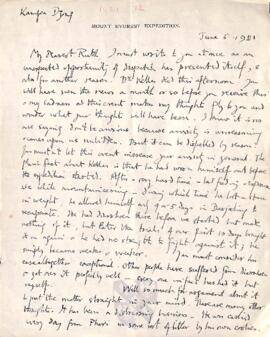 Kampa Dzong
1921
MOUNT EVEREST EXPEDITION.
June 6. 1921
My Dearest Ruth I must write to you at once as an
unexpected opportunity of dispatch has presented itself, &
also for another reason. Dr Kellas died this afternoon. You
will have seen the news a month or so before you receive this
my sadness at this event makes my thoughts fly to you and
wonder what your thoughts will have been. I know it is no
use saying Don't be anxious because anxiety is unreasoning &
comes upon us unbidden. But it can be dispelled by reason &
you must not let this event increase your anxiety in general. The
plain fact about Kellas is that he had worn himself out before
the expedition started. After a very hard time last
while mountaineering, during which time he lost a stone
in weight, he allowed himself only 4 or 5 days in Darjeeling to
recuperate. He had diarrhoea there before we started but made
nothing of it, but
on again & he had no strength to fight against it; he
simply became weaker & weaker. You must consider his
case altogether exceptional. Other people have suffered from diarrhoea
& got over it perfectly well - every one in fact has had it but
myself. Well so much for argument about it
to put the matter straight in your mind. There are many other
thoughts. It has been a distressing business. He was carried
every day from Phari in some sort of litter by his own coolies,